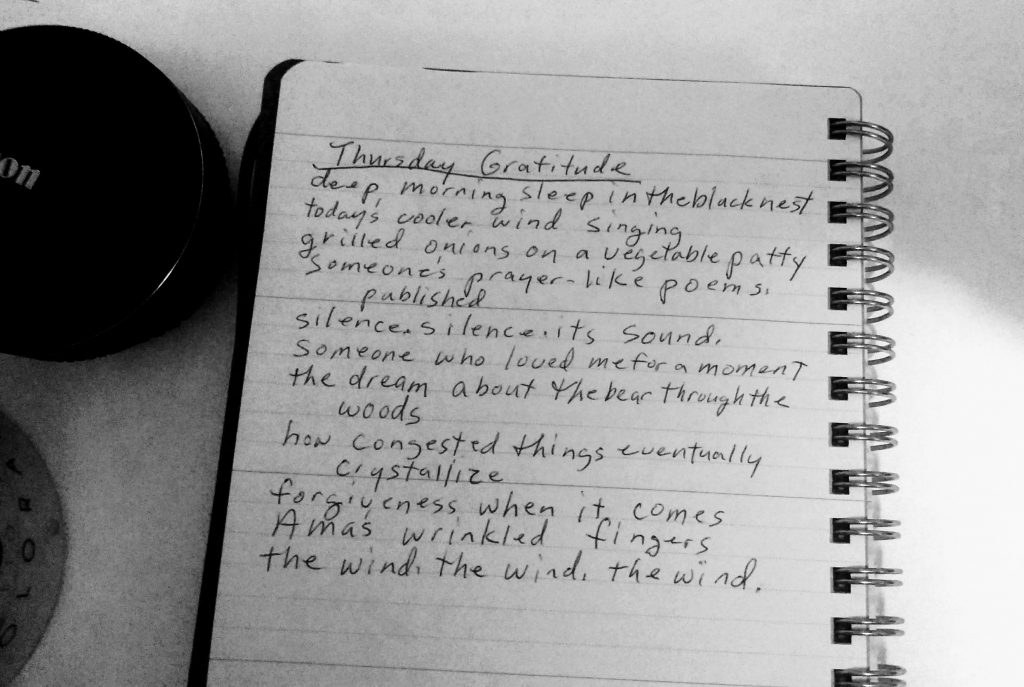 on
Thursday Gratitude
deep, morning sleep in the black nest
today's cooler wind singing
grilled onions on a vegetable patty
Someone's prayer-like poems.
published
silence. silence. its sound.
Someone who loved me for a moment
the dream about the bear through the
woods
how congested things eventually
crystallize
forgiveness when it comes
Ama's wrinkled fingers
the wind. the wind. the wind.